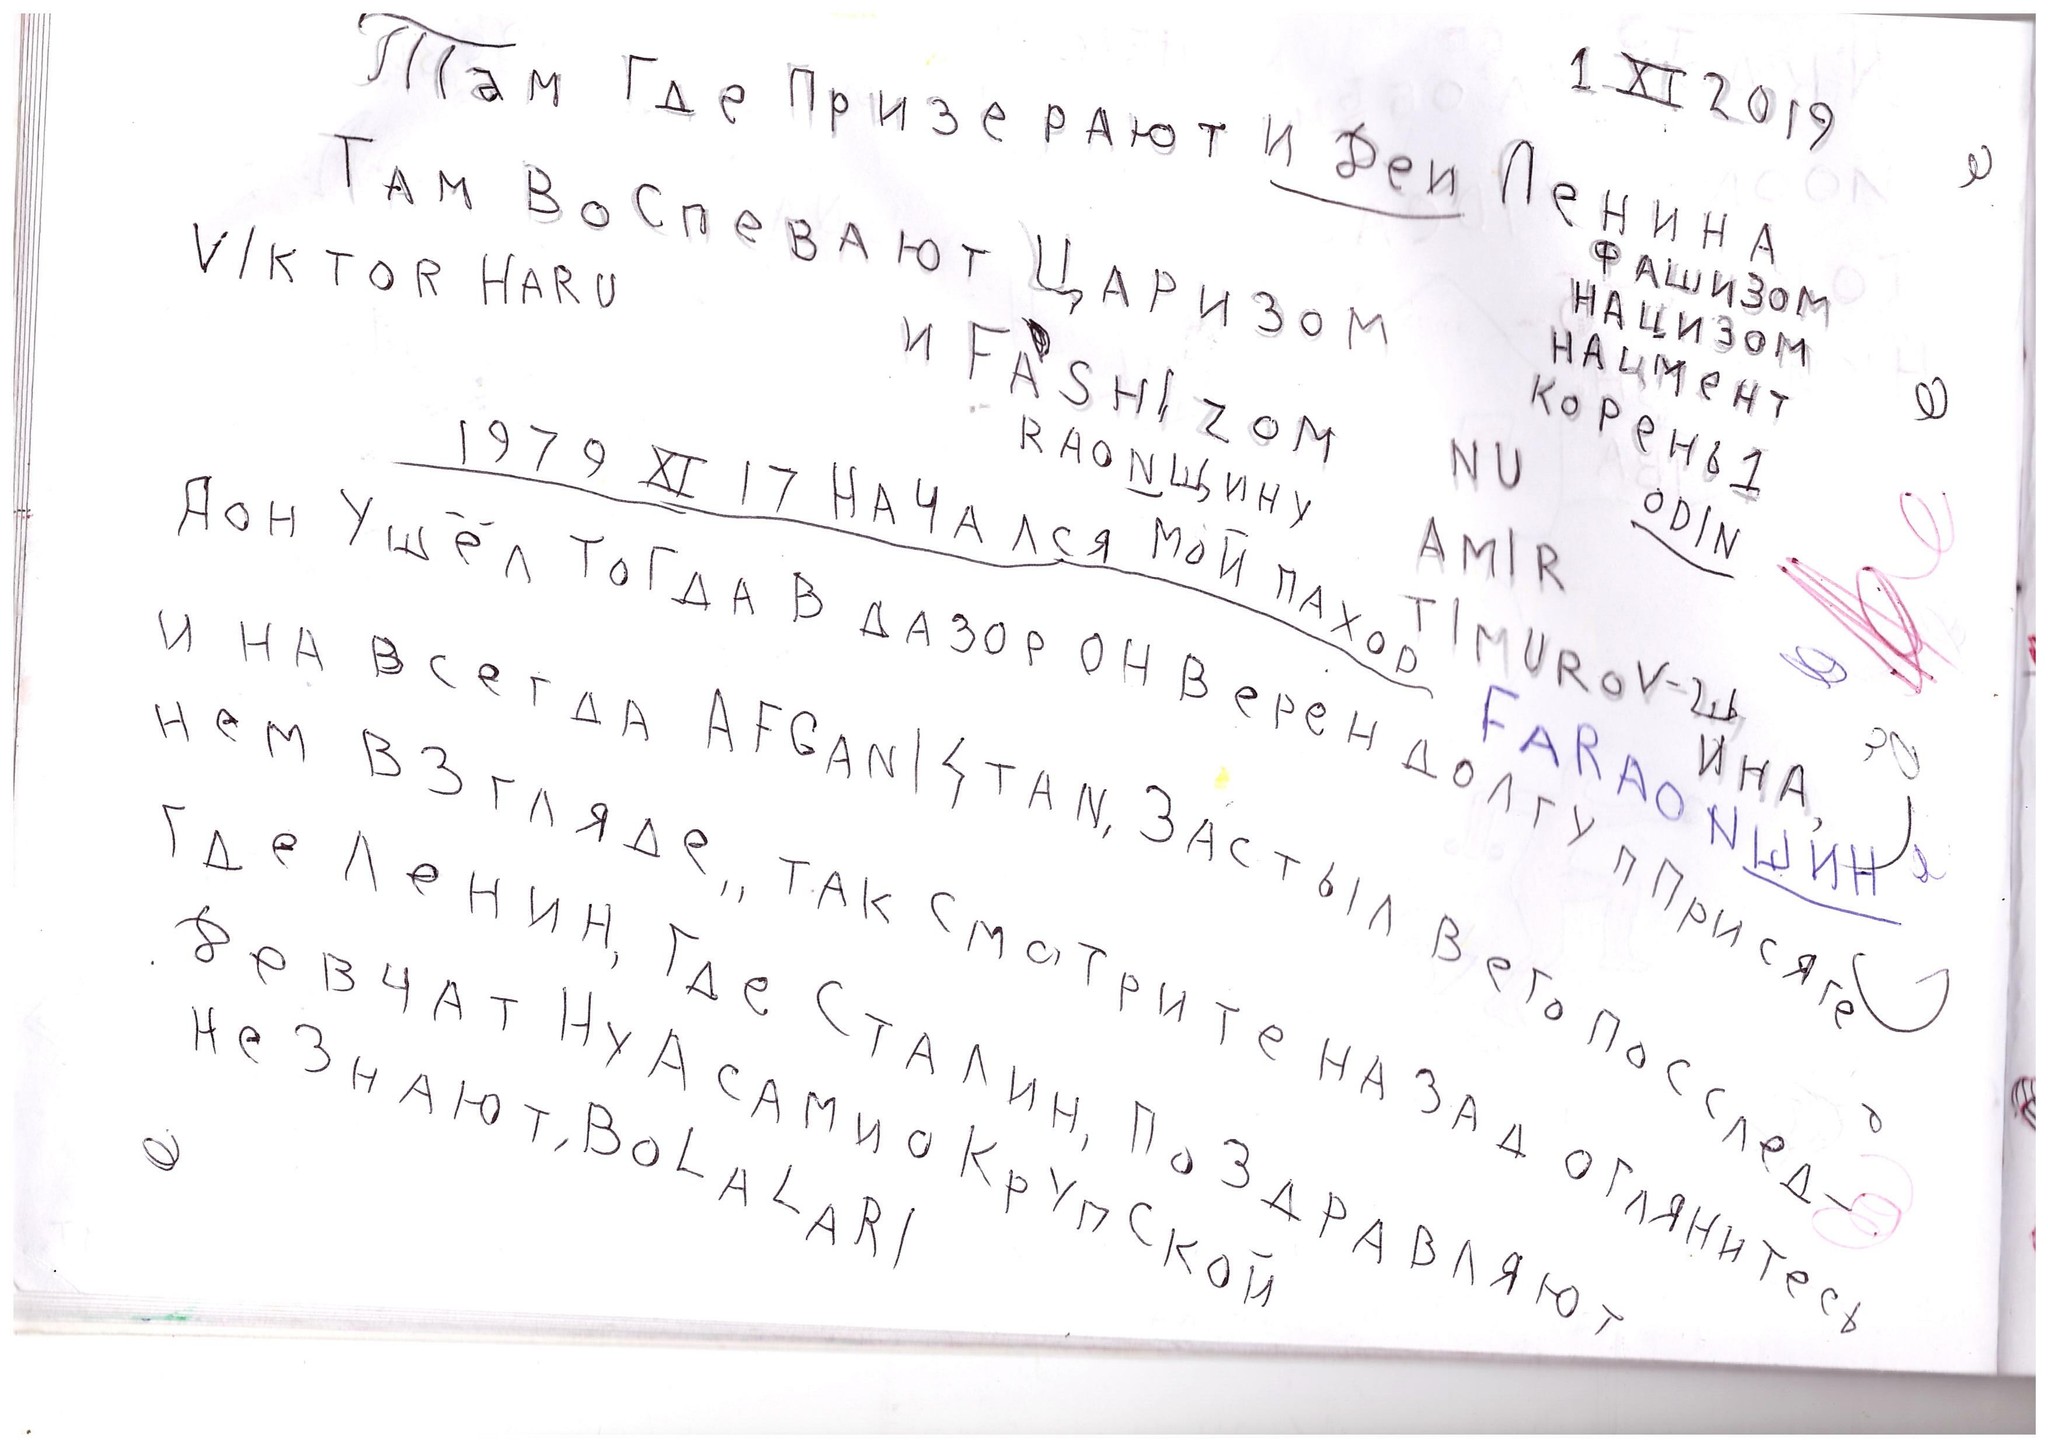 1 XI 2019
Там Где Призерают и деи Ленина
Там Воспевают Царизом
VIKTOR HARU
и FASHIZOM
RAONЩИНУ
ФАШИЗОМ
НАЦИЗОМ
НАЦМЕНТ
КОРЕНЬ 1
ODIN
NU
AMIR
TIMUROV-Щ
ИНА,
FARAONЩИН
1979 XI 17 НАЧАЛСЯ МОЙ ПАХОД
ЯОН Ушёл ТоГДА В ДАЗОР ОН Верен ДОЛГУ П Присяге
и НА ВСЕГДА AFGANISTAN, ЗАСТЫЛ В его Посслед-
нем ВЗгляде,, ТАК СмотриТе НАЗАД оглянитесь
Где Ленин, Где Сталин, ПоЗДРАВЛЯЮТ
Девчат Ну А САМИ о Крупской
Не Знают, BOLALARI